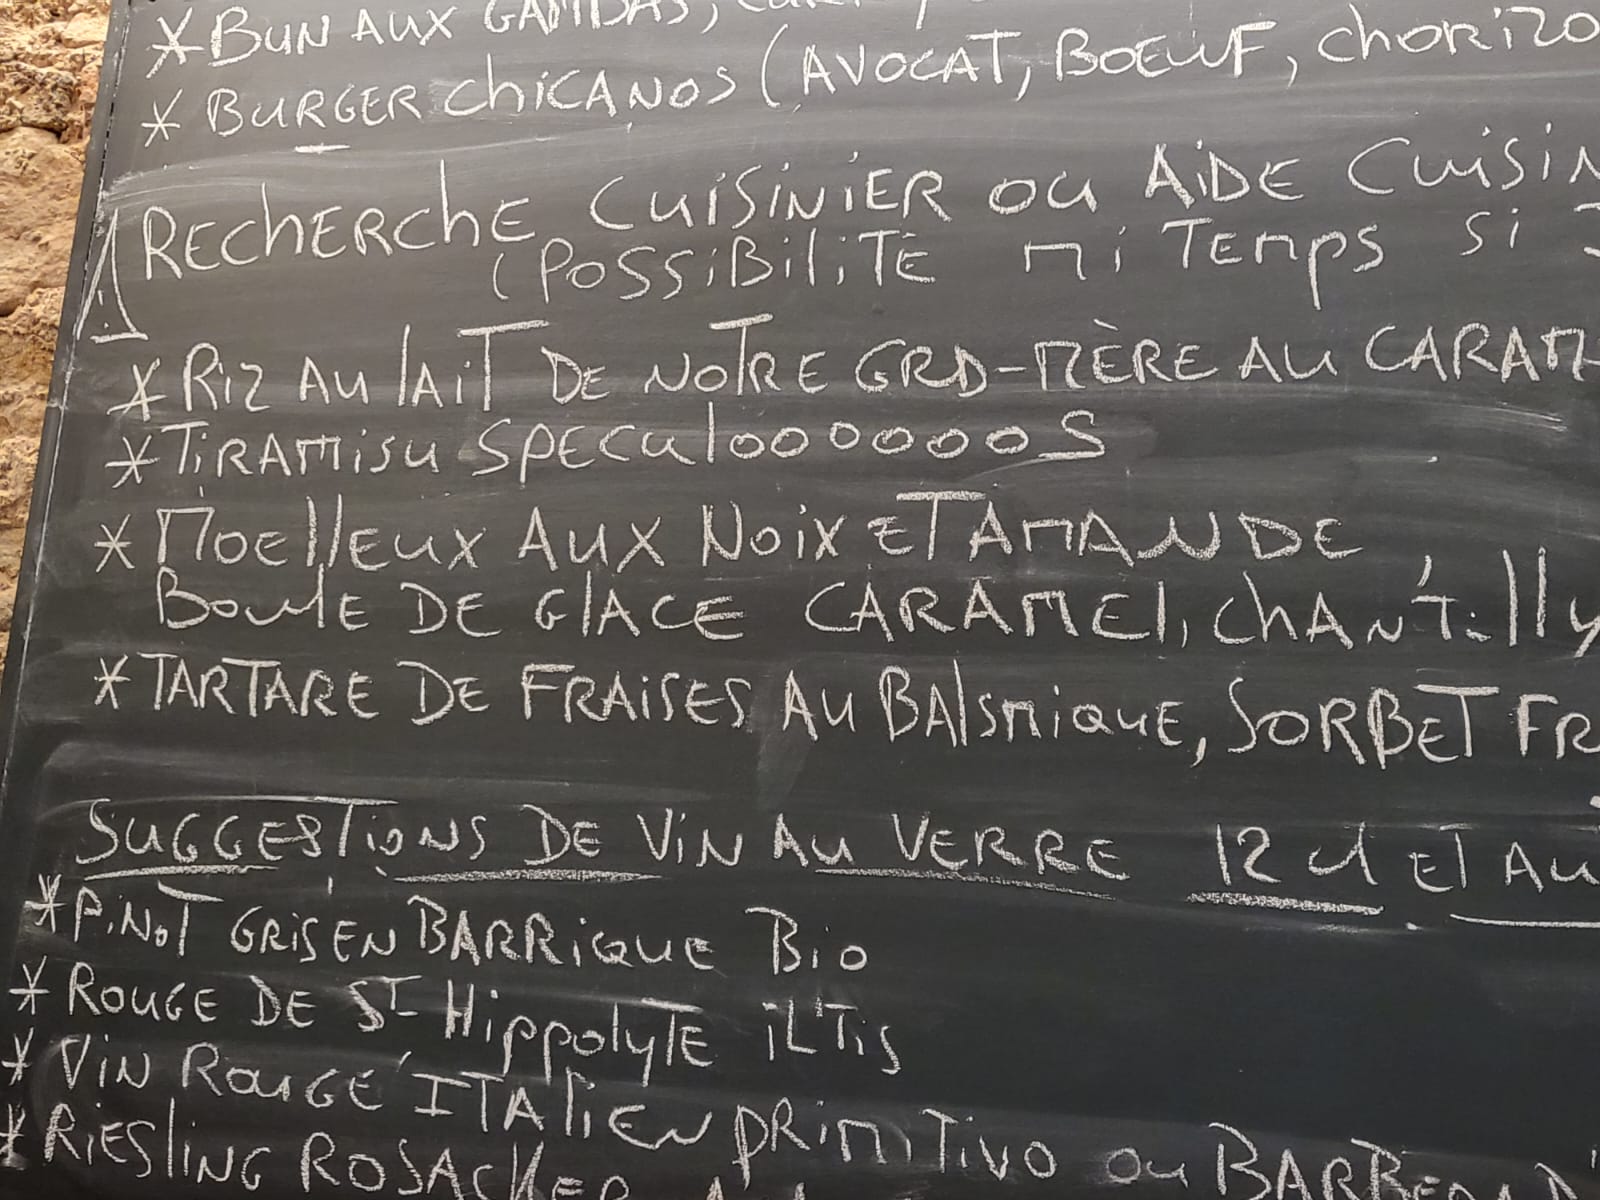 * BUN AUX GAMBAS,
* BURGER CHICANOS (AVOCAT, BOEUF, CHORIZO
RECHERCHE CUISINIER OU AIDE CUISIN
(POSSIBILITE MI TEMPS SI
* RIZ AU LAIT DE NOTRE GRD-MÈRE AU CARAM
* TIRAMISU SPECULOOOOOOOS
* MOELLEUX AUX NOIX ET AMANDE
BOULE DE GLACE CARAMEL, CHANTILLY
* TARTARE DE FRAISES AU BALSMIQUE, SORBET FR
SUGGESTIONS DE VIN AU VERRE 12 cl ET AU
* PINOT GRIS EN BARRIQUE BIO
* ROUGE DE ST HIPPOLYTE ILTIS
* VIN ROUGE ITALIEN PRIMITIVO OU BARBERA
* RIESLING ROSACKER